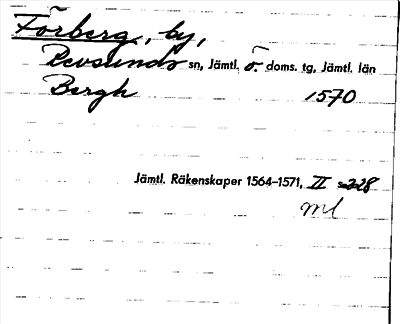 Förberg, by,
Revsunds sn, Jämtl. ö. doms. tg, Jämtl. län
Bergh 1570
Jämtl. Räkenskaper 1564–1571, II s. 228
ml